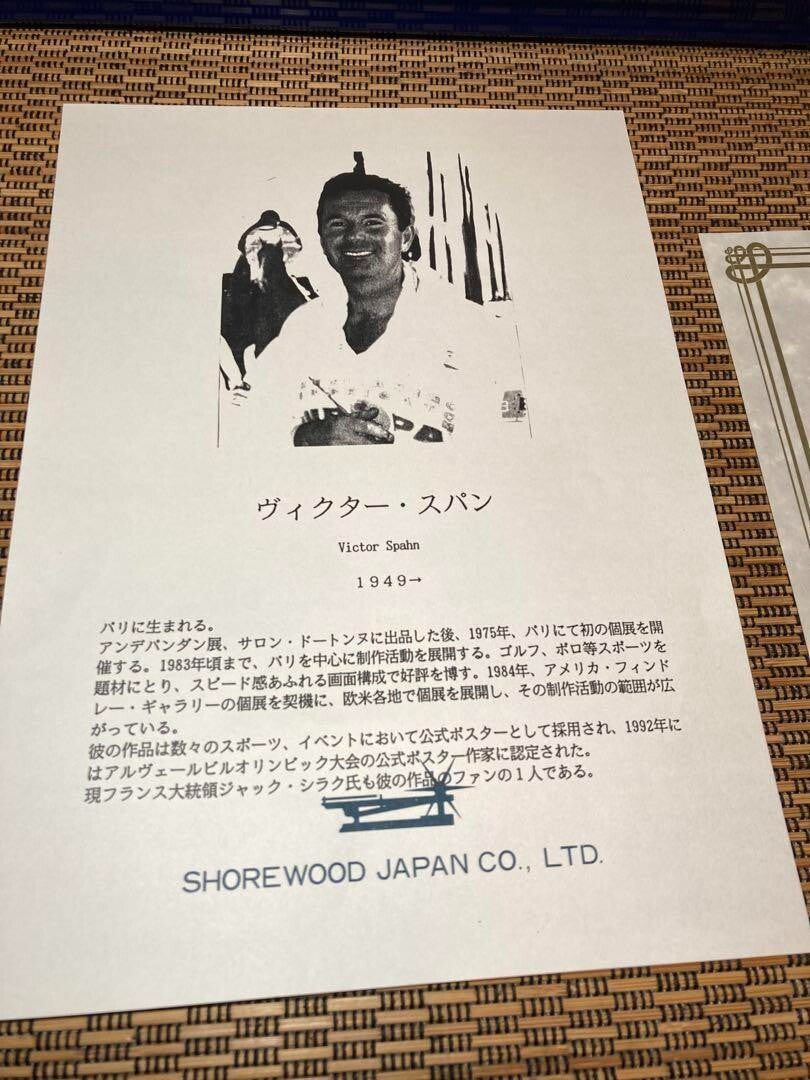 ヴィクター・スパン
Victor Spahn
1949→
パリに生まれる。
アンデパンダン展、サロン・ドートンヌに出品した後、1975年、パリにて初の個展を開
催する。1983年頃まで、パリを中心に制作活動を展開する。ゴルフ、ポロ等スポーツを
題材にとり、スピード感あふれる画面構成で好評を博す。1984年、アメリカ・フィンド
レー・ギャラリーの個展を契機に、欧米各地で個展を展開し、その制作活動の範囲が広
がっている。
彼の作品は数々のスポーツ、イベントにおいて公式ポスターとして採用され、1992年に
はアルヴェールビルオリンピック大会の公式ポスター作家に認定された。
現フランス大統領ジャック・シラク氏も彼の作品のファンの1人である。
SHOREWOOD JAPAN CO., LTD.